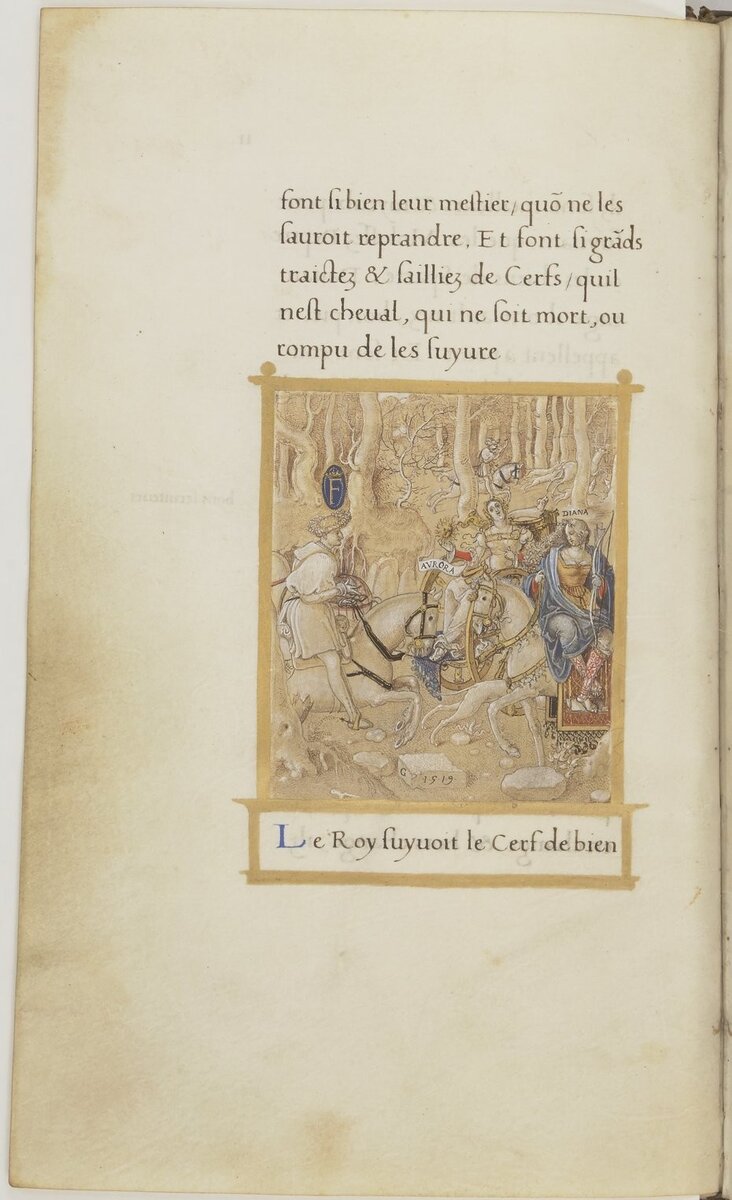 ſont ſi bien leur meſtier/ quõ ne les
ſauroit reprandre, Et ſont ſi grãds
traictez & ſailliez de Cerfs / quil
neſt cheual, qui ne ſoit mort, ou
rompu de les ſuyure
F
DIANA
AVRORA
G 1519
Le Roy ſuyuoit le Cerf de bien